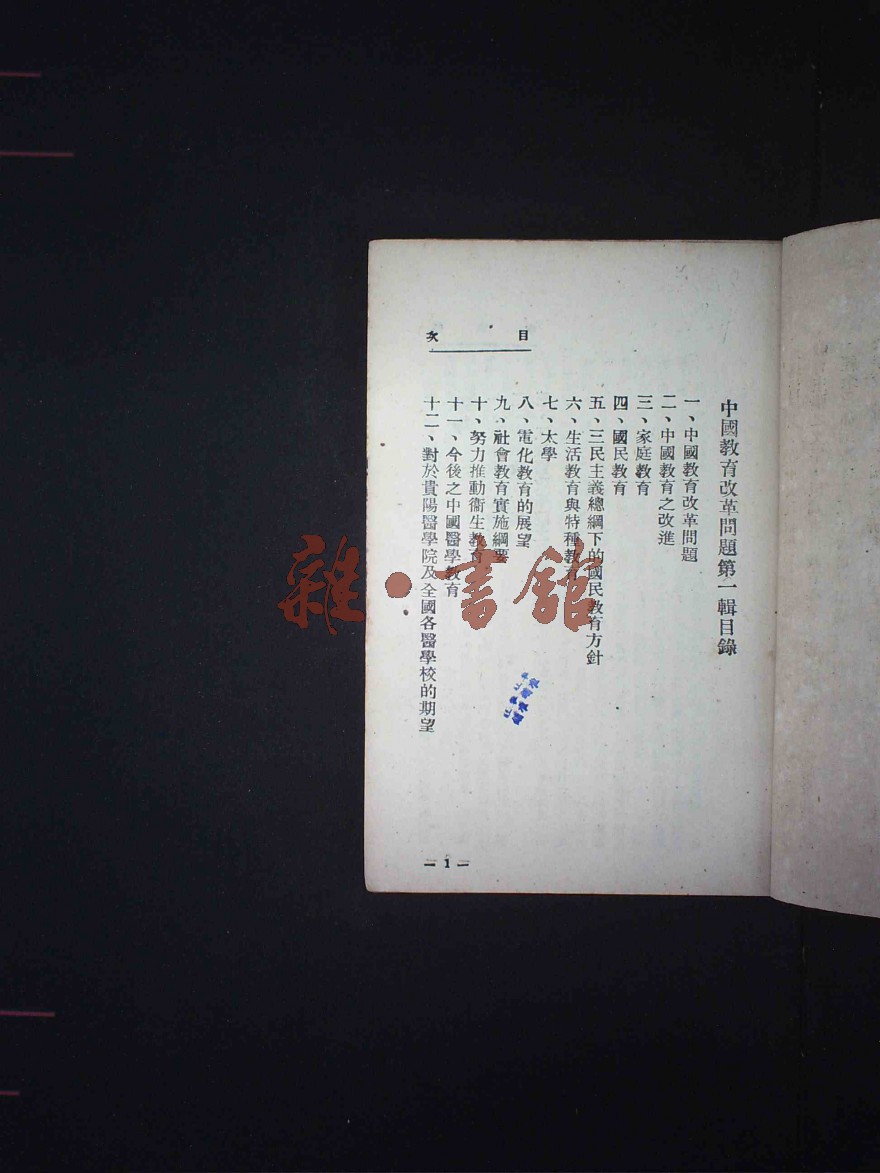 目次
中國教育改革問題第一輯目錄
一、中國教育改革問題
二、中國教育之改進
三、家庭教育
四、國民教育
五、三民主義總綱下的國民教育方針
六、生活教育與特種教育
七、太學
八、電化教育的展望
九、社會教育實施綱要
十、努力推動衞生教育
十一、今後之中國醫學教育
十二、對於貴陽醫學院及全國各醫學校的期望
— 1 —
雜·書館